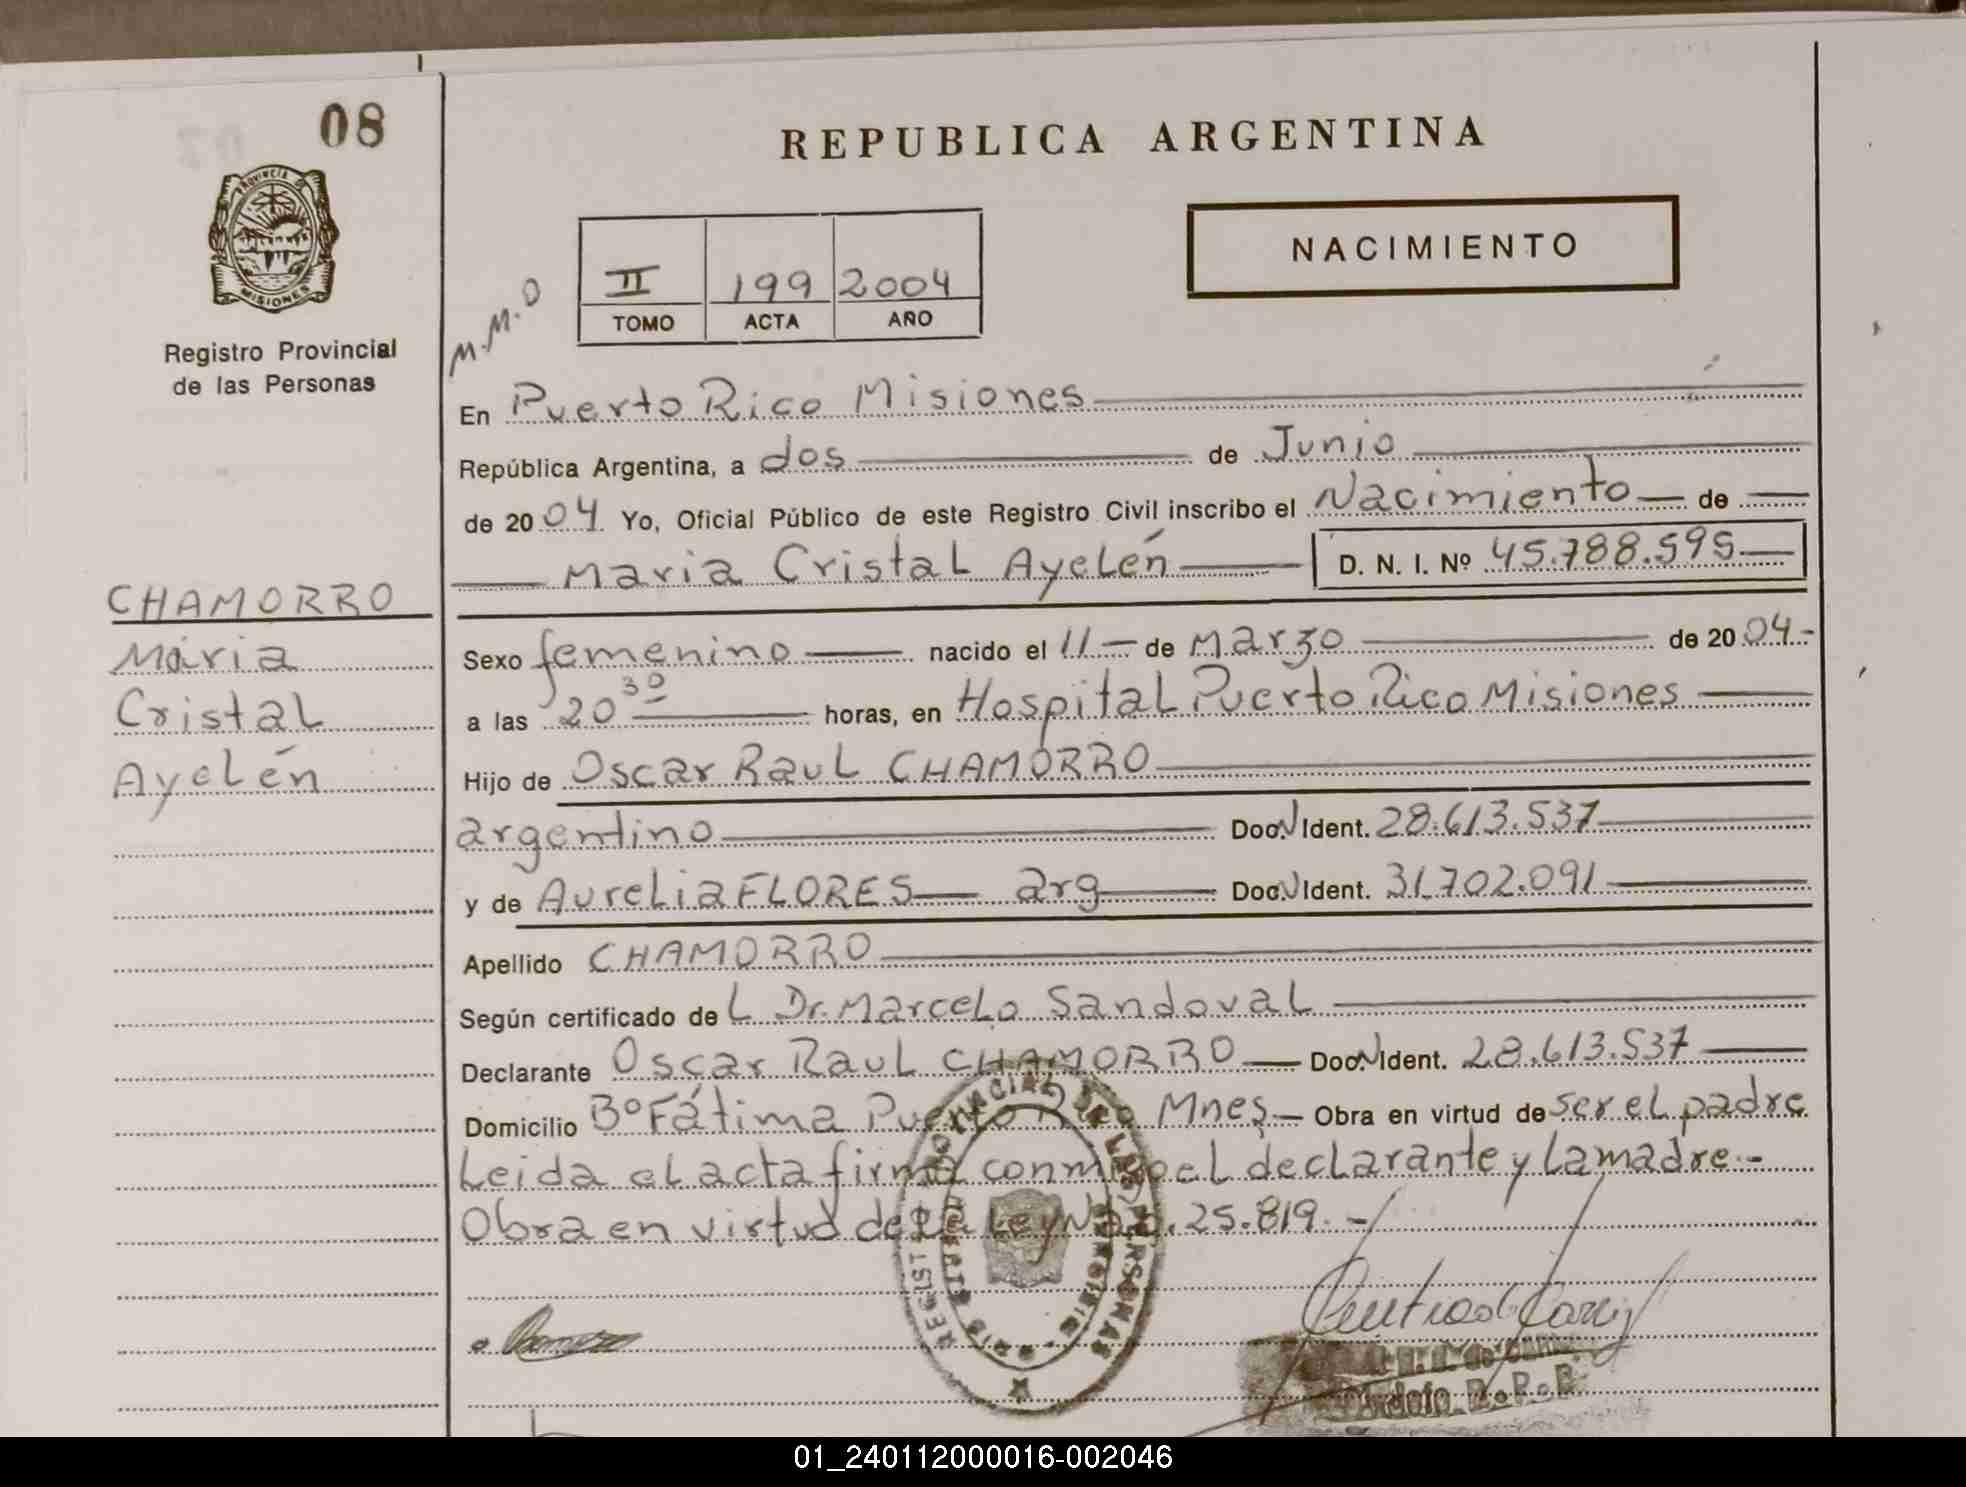 08
PROVINCIA DE
MISIONES
Registro Provincial
de las Personas
CHAMORRO
Maria
Cristal
Ayelén
REPUBLICA ARGENTINA
NACIMIENTO
M.M.O
II 199 2004
TOMO ACTA AÑO
En Puerto Rico Misiones
República Argentina, a dos de Junio
de 2004 Yo, Oficial Público de este Registro Civil inscribo el Nacimiento de
Maria Cristal Ayelén D. N. I. Nº 45.788.595
Sexo femenino nacido el 11 de Marzo de 2004.-
a las 20 30 horas, en Hospital Puerto Rico Misiones
Hijo de Oscar Raul CHAMORRO
argentino Doc.N Ident. 28.613.537
y de Aurelia FLORES arg Doc.N Ident. 31.702.091
Apellido CHAMORRO
Según certificado de L Dr. Marcelo Sandoval
Declarante Oscar Raul CHAMORRO Doc.N Ident. 28.613.537
Domicilio Bº Fátima Puerto Rico Mnes. Obra en virtud de ser el padre
Leida el acta firma conmigo el declarante y la madre.-
Obra en virtud de la Ley Nac. 25.819.-
01_240112000016-002046